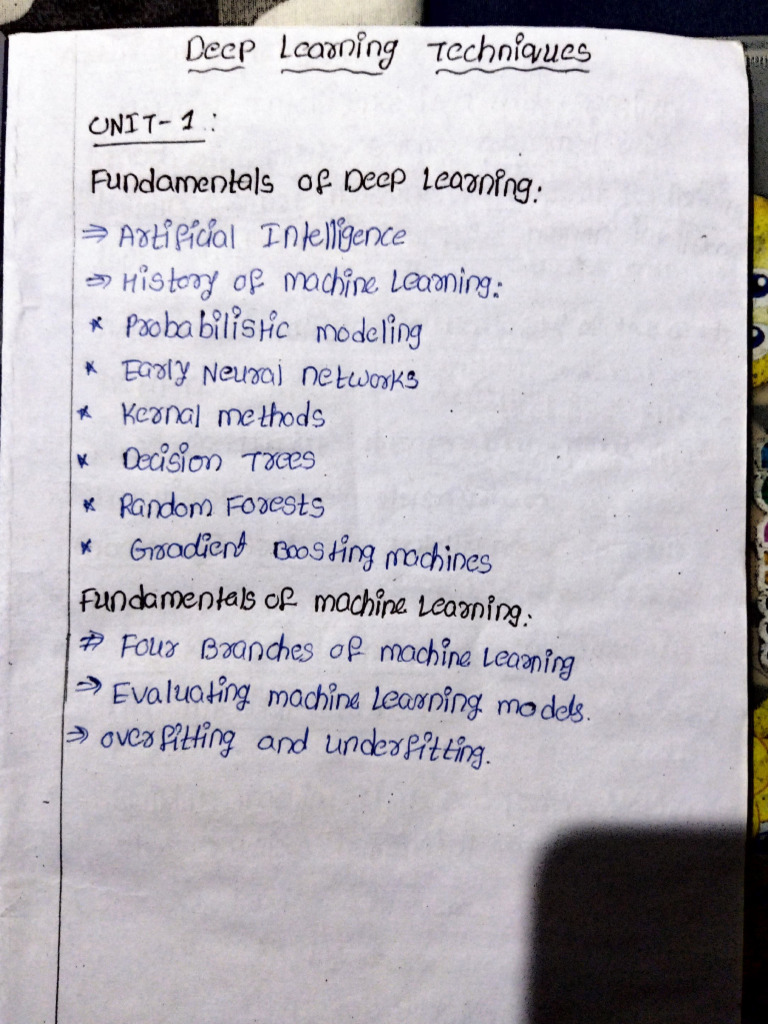 Deep Learning Techniques
UNIT-1:
Fundamentals of Deep Learning:
⇒ Artificial Intelligence
⇒ History of machine Learning:
* Probabilistic modeling
* Early Neural networks
* Kernal methods
* Decision Trees
* Random Forests
* Gradient Boosting machines
Fundamentals of machine Learning:
⇒ Four Branches of machine Learning
⇒ Evaluating machine Learning models.
⇒ overfitting and underfitting.